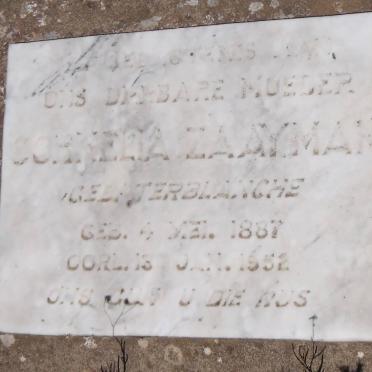 ONS DIERBARE MOEDER
CORNELIA ZAAYMAN
GEB. TERBLANCHE
GEB. 4 MEI. 1887
OORL. 1ST JAN. 1952
ONS GUN U DIE RUS